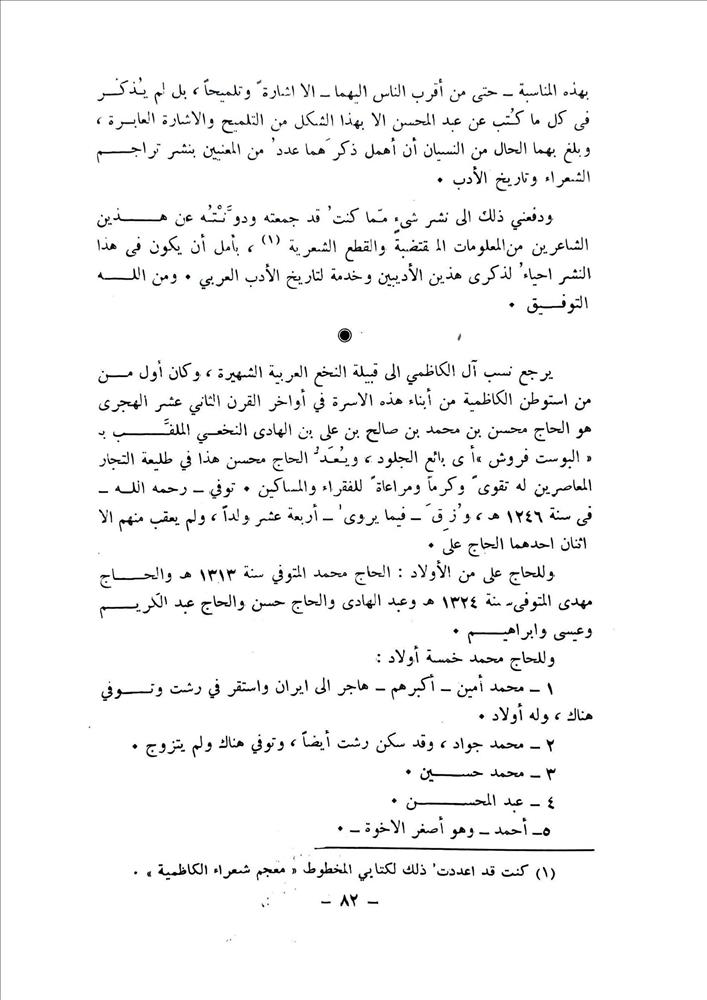 بهذه المناسبة ــ حتى من أقرب الناس اليهما ــ الا اشارةً وتلميحاً ، بل لم يُذكر
فى كل ما كُتب عن عبد المحسن الا بهذا الشكل من التلميح والاشارة العابرة ،
وبلغ بهما الحال من النسيان أن أهمل ذكرَهما عددٌ من المعنيين بنشر تراجم
الشعراء وتاريخ الأدب ٠
ودفعني ذلك الى نشر شيءٍ ممّا كنتُ قد جمعته ودوَّنْتُه عن هذين
الشاعرين من المعلومات المقتضبة والقطع الشعرية (١) ، بأمل أن يكون فى هذا
النشر احياءٌ لذكرى هذين الأديبين وخدمة لتاريخ الأدب العربي ٠ ومن الله
التوفيق ٠
يرجع نسب آل الكاظمي الى قبيلة النخع العربية الشهيرة ، وكان أول من
من استوطن الكاظمية من أبناء هذه الاسرة في أواخر القرن الثاني عشر الهجرى
هو الحاج محسن بن محمد بن صالح بن على بن الهادى النخعي الملقَّب بـ
« البوست فروش »أى بائع الجلود ، ويُعَدُّ الحاج محسن هذا في طليعة التجار
المعاصرين له تقوىً وكرماً ومراعاةً للفقراء والمساكين ٠ توفي ــ رحمه الله ــ
فى سنة ١٢٤٦ هـ ، وُزِقَ ــ فيما يروى ــ أربعة عشر ولداً ، ولم يعقب منهم الا
اثنان احدهما الحاج على ٠
وللحاج على من الأولاد : الحاج محمد المتوفي سنة ١٣١٣ هـ والحاج
مهدى المتوفى سنة ١٣٢٤ هـ وعبد الهادى والحاج حسن والحاج عبد الكريم
وعيسى وابراهيم ٠
وللحاج محمد خمسة أولاد :
١ ــ محمد أمين ــ أكبرهم ــ هاجر الى ايران واستقر في رشت وتوفي
هناك ، وله أولاد ٠
٢ ــ محمد جواد ، وقد سكن رشت أيضاً ، وتوفي هناك ولم يتزوج ٠
٣ ــ محمد حسين ٠
٤ ــ عبد المحسن ٠
٥ــ أحمد ــ وهو أصغر الاخوة ــ ٠
(١) كنت قد اعددتُ ذلك لكتابي المخطوط « معجم شعراء الكاظمية » ٠
ــ ٨٢ ــ